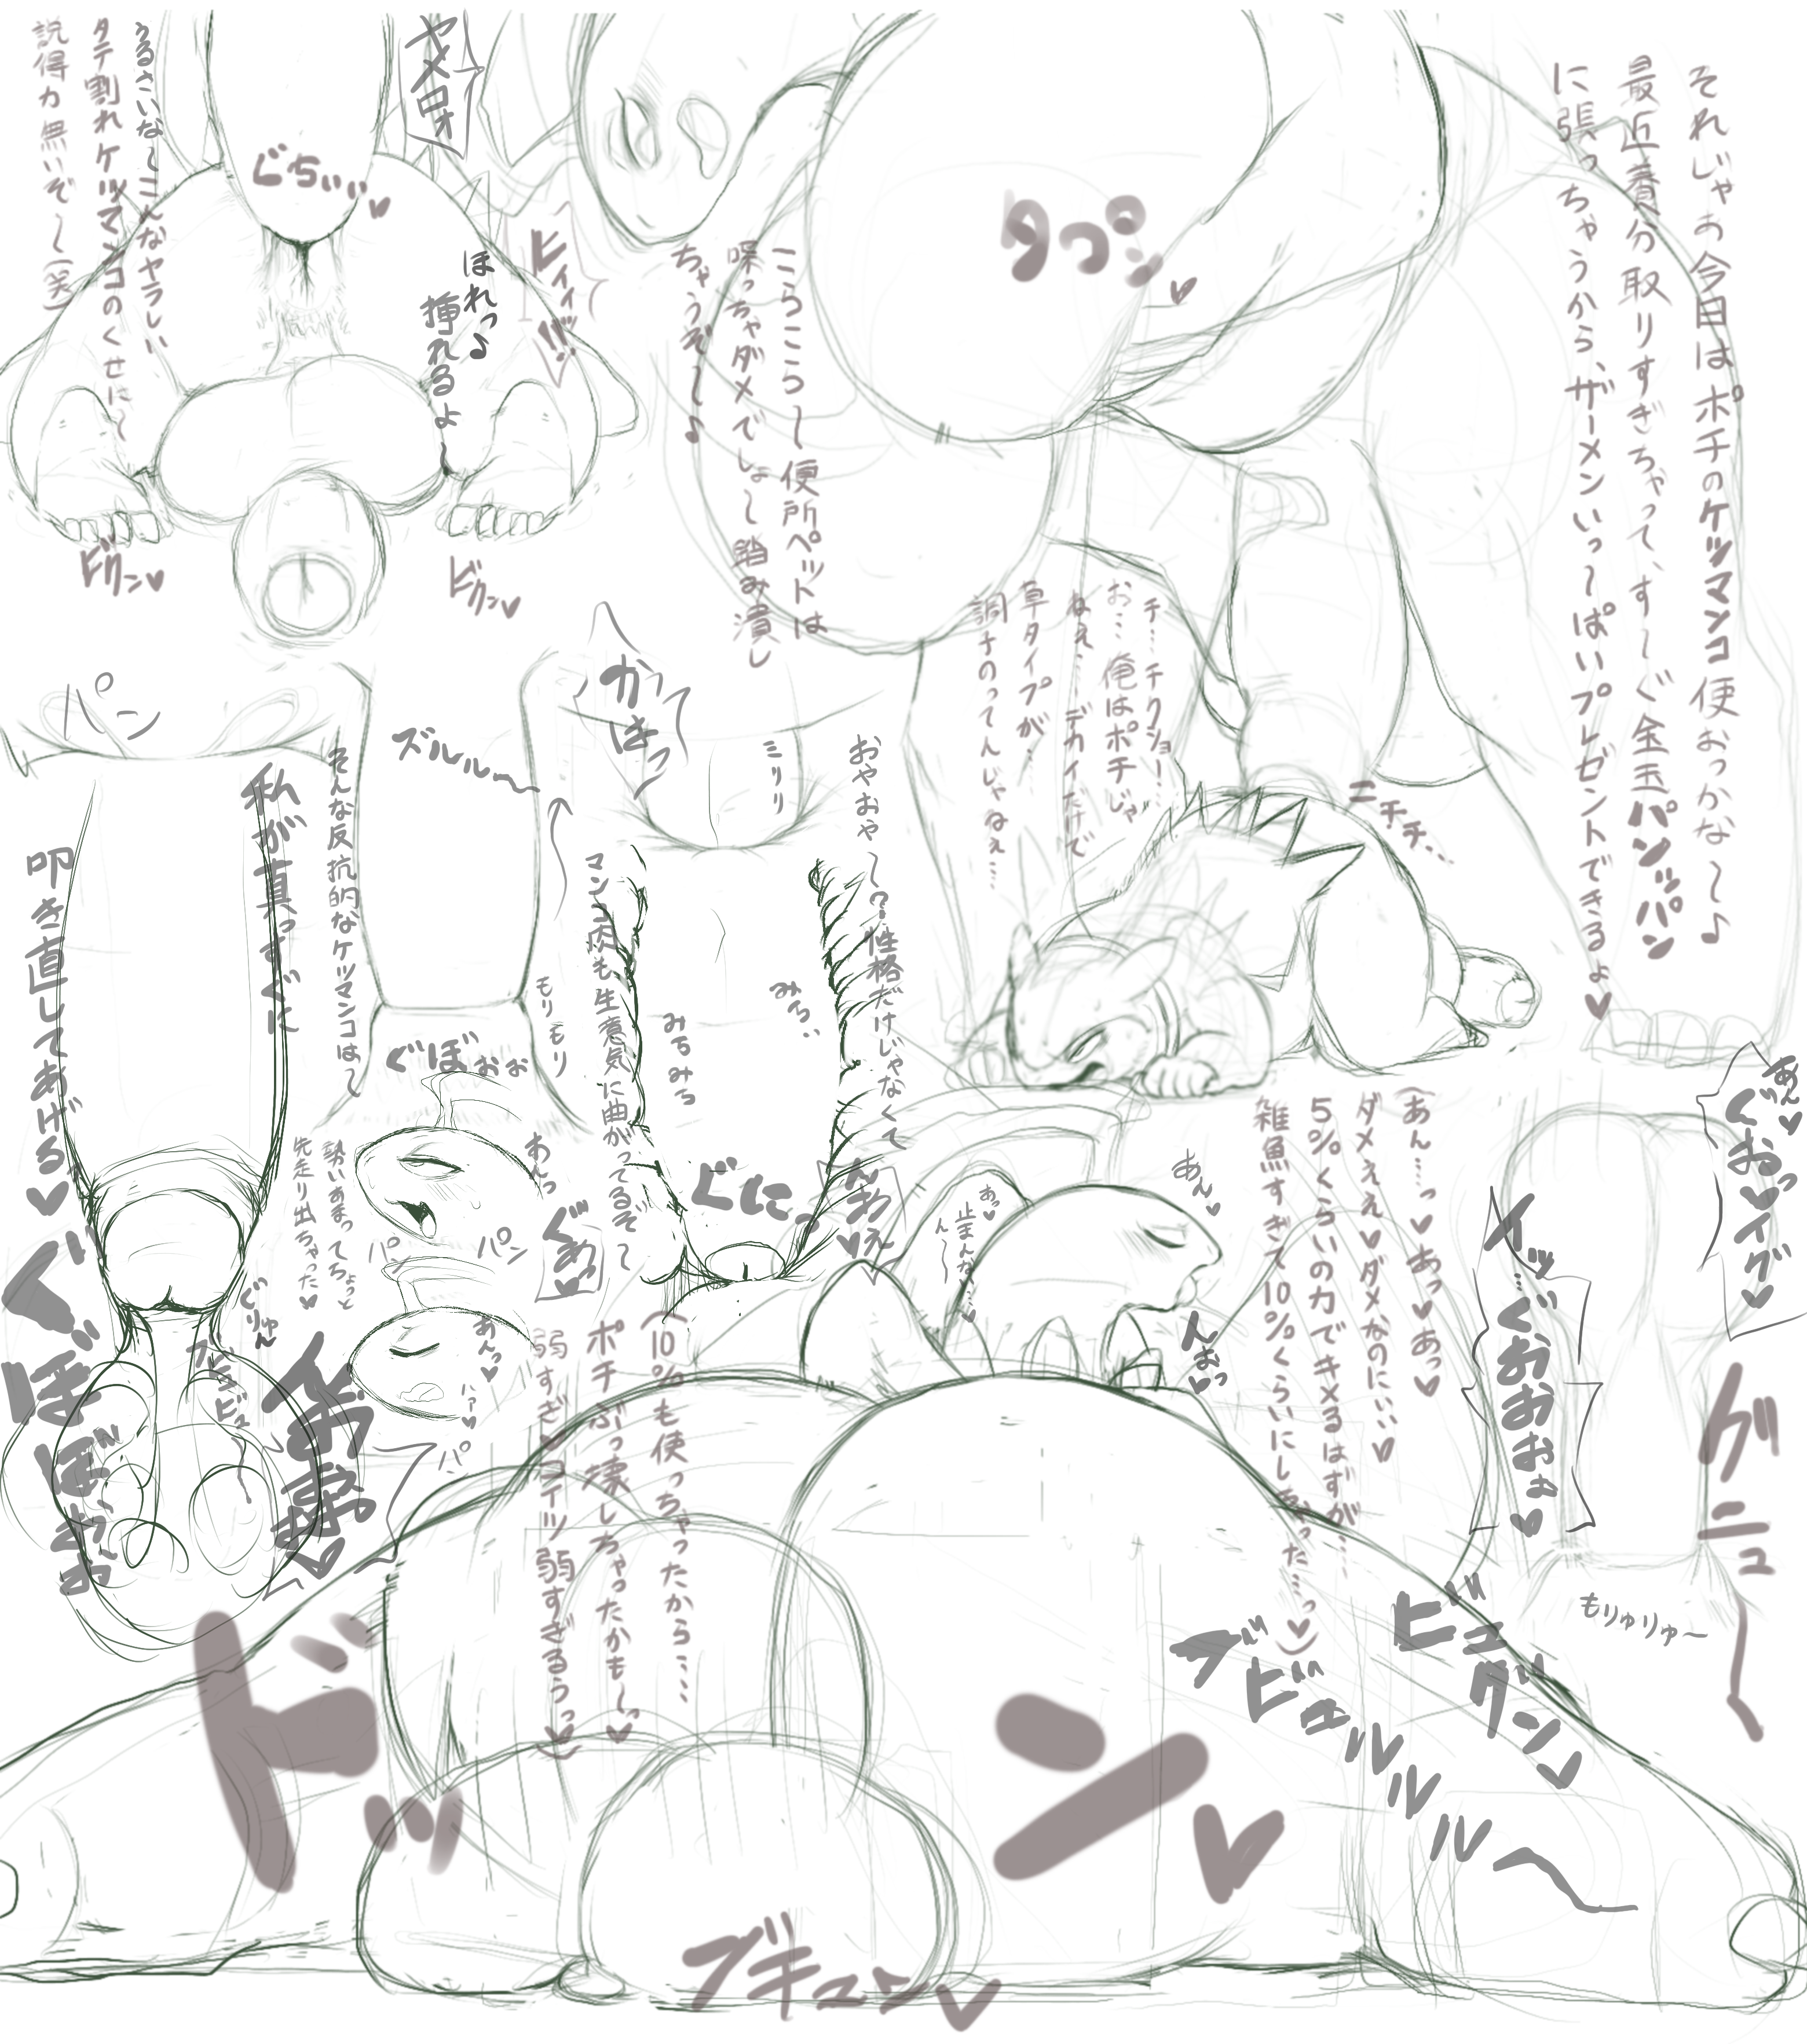 それじゃお今日はポチのケツマンコ便おっかな〜♪
最近養分取りすぎちゃって、す〜ぐ金玉パンッパン
に張っちゃうから、ザーメンいっ〜ぱいプレゼントできるよ♥
タプン♥
こらこら〜便所ペットは
喋っちゃダメでしょ〜踏み潰し
ちゃうぞ〜♪
チ…チクショー!…
お…俺はポチじゃ
ねぇ…デカイだけで
草タイプが…
調子のってんじゃねぇ……
ニチチ…
ヤメロォ
うるさいな〜こんなヤラしい
タテ割れケツマンコのくせに〜
説得力無いぞ〜(笑)
ぐちぃぃ♥
ヒィィ!!!
ほれっ♪
挿れるよ〜
ビクン♥
ビクン♥
かはっ
ミリリ
おやおや〜?性格だけじゃなくて
マンコ肉も生意気に曲がってるぞ〜
みち…
みちみち
ぐにっ
んおぇ♥
ズルル〜
そんな反抗的なケツマンコは〜
もりもり
ぐぼぉぉ
パン
私が真っすぐに
叩き直してあげる♥
ぐぼぼぉぉ
ぐりゅん
ブビュビュ
お゙♥
あんっ
パン
パン
勢いあまってちょっと
先走り出ちゃった♥
あんっ♥
ハァ♥
パ
あん♥
あっ♥
止まんない…♥
ん〜
んおっ♥
(あん…っ♥あっ♥あっ♥
ダメえぇ♥ダメなのにぃぃ♥
5%くらいの力でキメるはずが…
雑魚すぎて10%くらいにしちゃった…っ♥)
(10%も使っちゃったから……
ポチぶっ壊しちゃったかも〜っ♥
弱すぎ♥コイツ弱すぎるぅっ♥)
あん♥
ぐおっ♥イグ♥
イッ…くおおおぉ♥
グニュ〜
もりゅりゅ〜
ビュグン♥
ブビュルルルル〜
ドッン♥
ブキュン♥